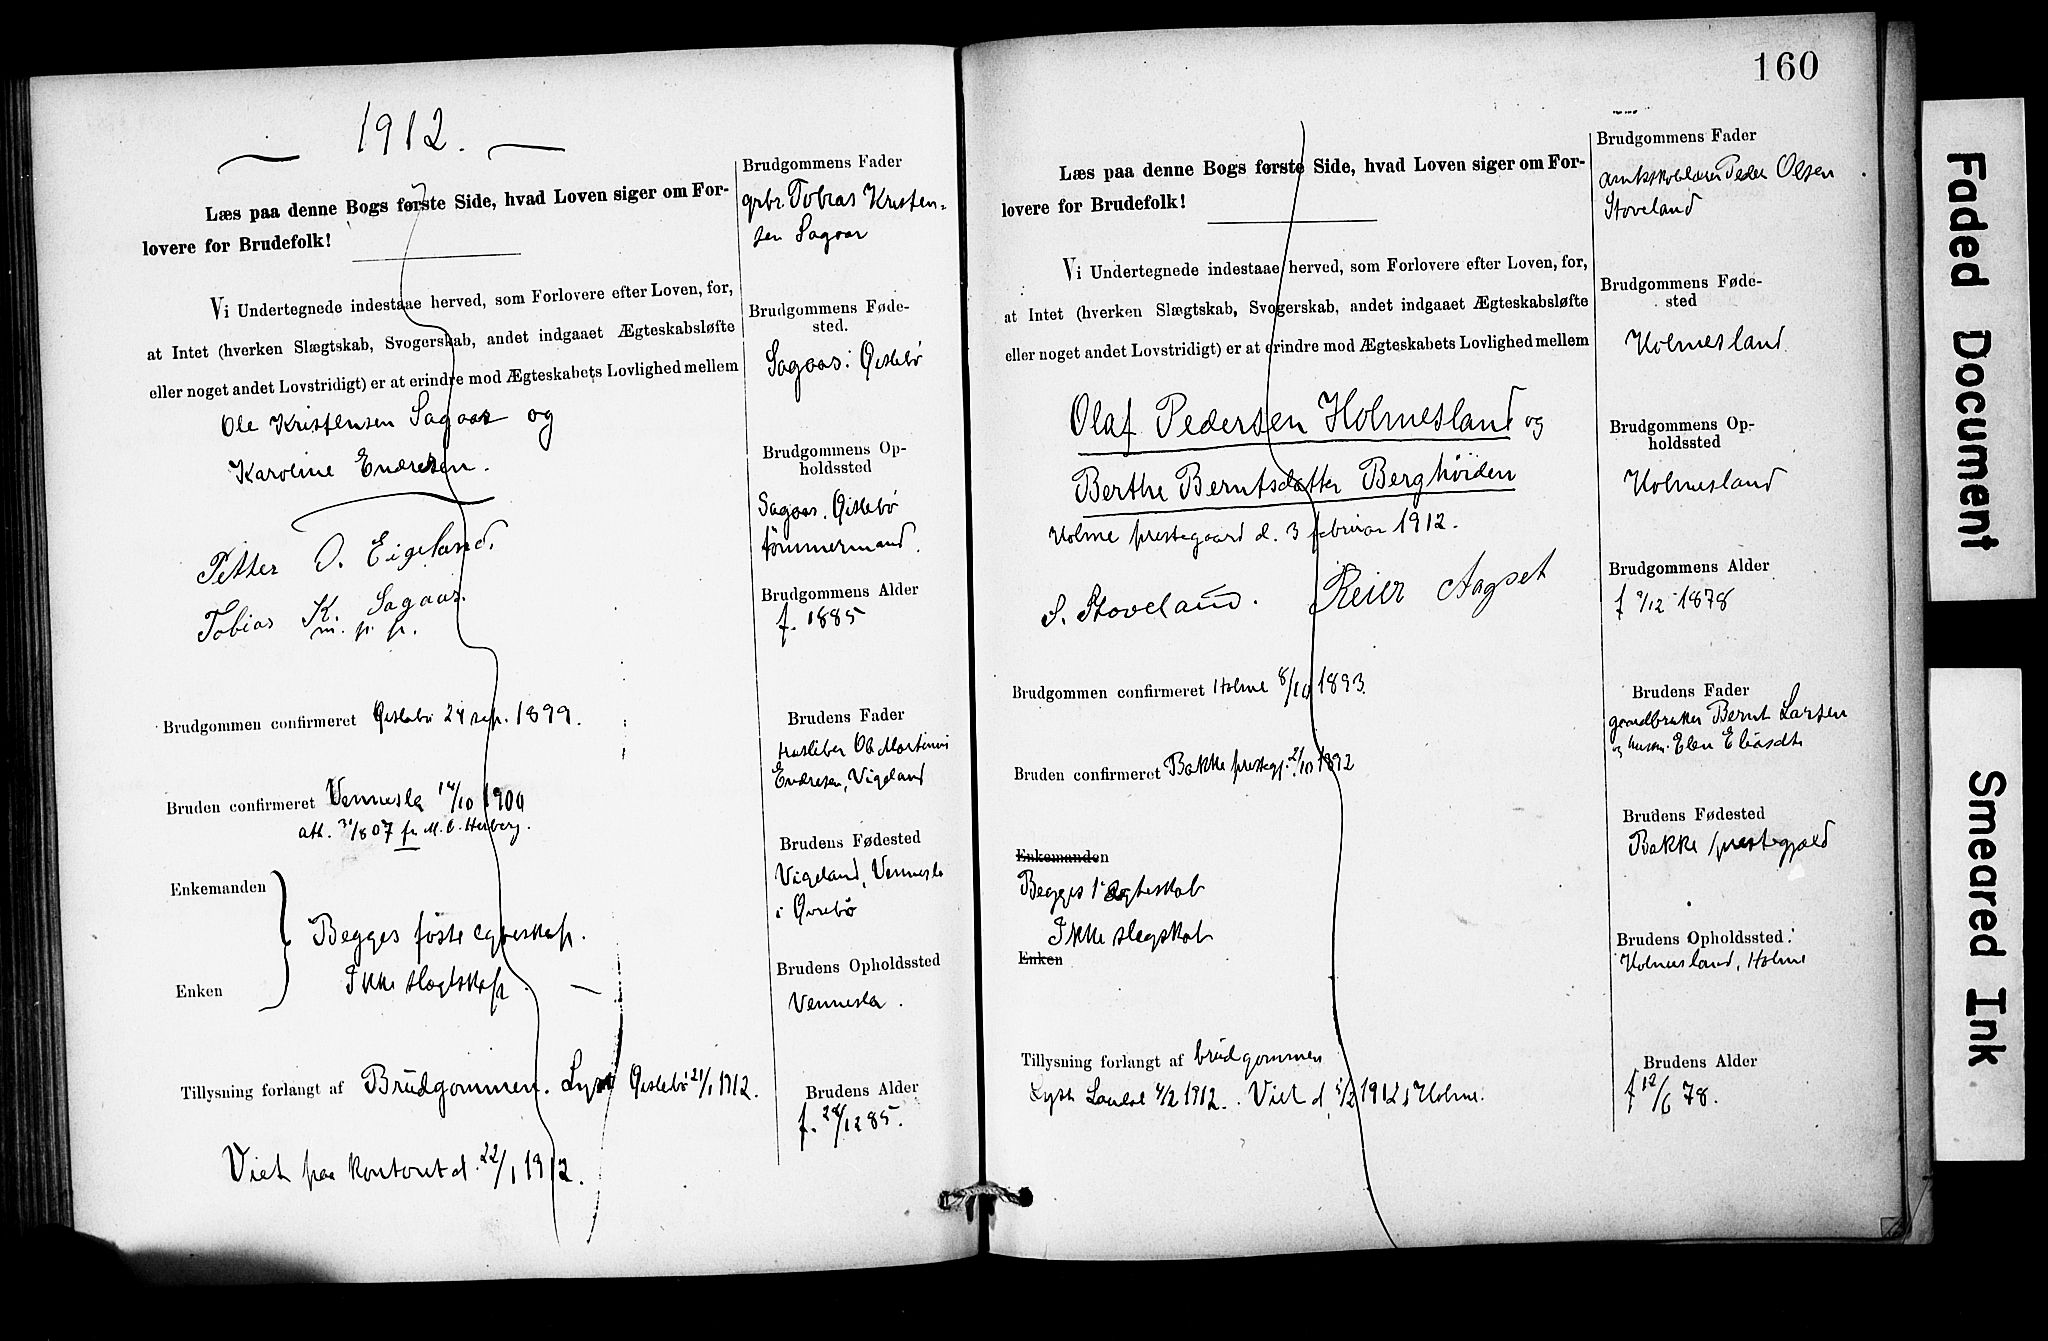 1912.
Læs paa denne Bogs første Side, hvad Loven siger om For-
lovere for Brudefolk!
Vi Undertegnede indestaae herved, som Forlovere efter Loven, for,
at Intet (hverken Slægtskab, Svogerskab, andet indgaaet Ægteskabsløfte
eller noget andet Lovstridigt) er at erindre mod Ægteskabets Lovlighed mellem
Ole Kristensen Sagaas og
Karoline Endresen.
Petter O. Eigeland.
Tobias K. Sagaas.
m. p. p.
Brudgommen confirmeret Øislebø 24 sep. 1899.
Bruden confirmeret Vennesla 14/10 1900
att. 31/8 07 fr M. C. Herberg.
Enkemanden
Begges føste egteskap.
Ikke slægtskap
Enken
Tillysning forlangt af Brudgommen. Lyst Øislebø 21/1 1912.
Viet paa kontoret d. 22/1 1912.
Brudgommens Fader
grbr. Tobias Kristen-
sen Sagaas
Brudgommens Føde-
sted.
Sagaas i Øislebø
Brudgommens Op-
holdssted
Sagaas, Øislebø
tømmermand.
Brudgommens Alder
f. 1885
Brudens Fader
Ole Martinus
Endresen, Vigeland
Brudens Fødested
Vigeland, Vennesla
i Øvrebø
Brudens Opholdssted
Vennesla.
Brudens Alder
f. 28/12 85.
160
Læs paa denne Bogs første Side, hvad Loven siger om For-
lovere for Brudefolk!
Vi Undertegnede indestaae herved, som Forlovere efter Loven, for,
at Intet (hverken Slægtskab, Svogerskab, andet indgaaet Ægteskabsløfte
eller noget andet Lovstridigt) er at erindre mod Ægteskabets Lovlighed mellem
Olaf Pedersen Holmesland og
Berthe Berntsdatter Berghøiden
Holme prestegaard d. 3 februar 1912.
S. Stoveland. Reier Aagset
Brudgommen confirmeret Holme 8/10 1893.
Bruden confirmeret Bakke prestegj. 2/10 1892
Enkemanden
Begges 1ste ægteskab
Ikke slegskab
Enken
Tillysning forlangt af brudgommen
Lyst 4/2 1912. Viet d. 5/2 1912 i Holme.
Brudgommens Fader
amtsskolelærer Peder Olsen
Stoveland
Brudgommens Føde-
sted
Holmesland.
Brudgommens Op-
holdssted
Holmesland
Brudgommens Alder
f 9/12 1878
Brudens Fader
gaardbruker Bernt Larsen
og hustru Elen Eliasdtr
Brudens Fødested
Bakke prestegjæld
Brudens Opholdssted.
Holmesland, Holme
Brudens Alder
f 12/6 78.
Faded Document
Smeared Ink